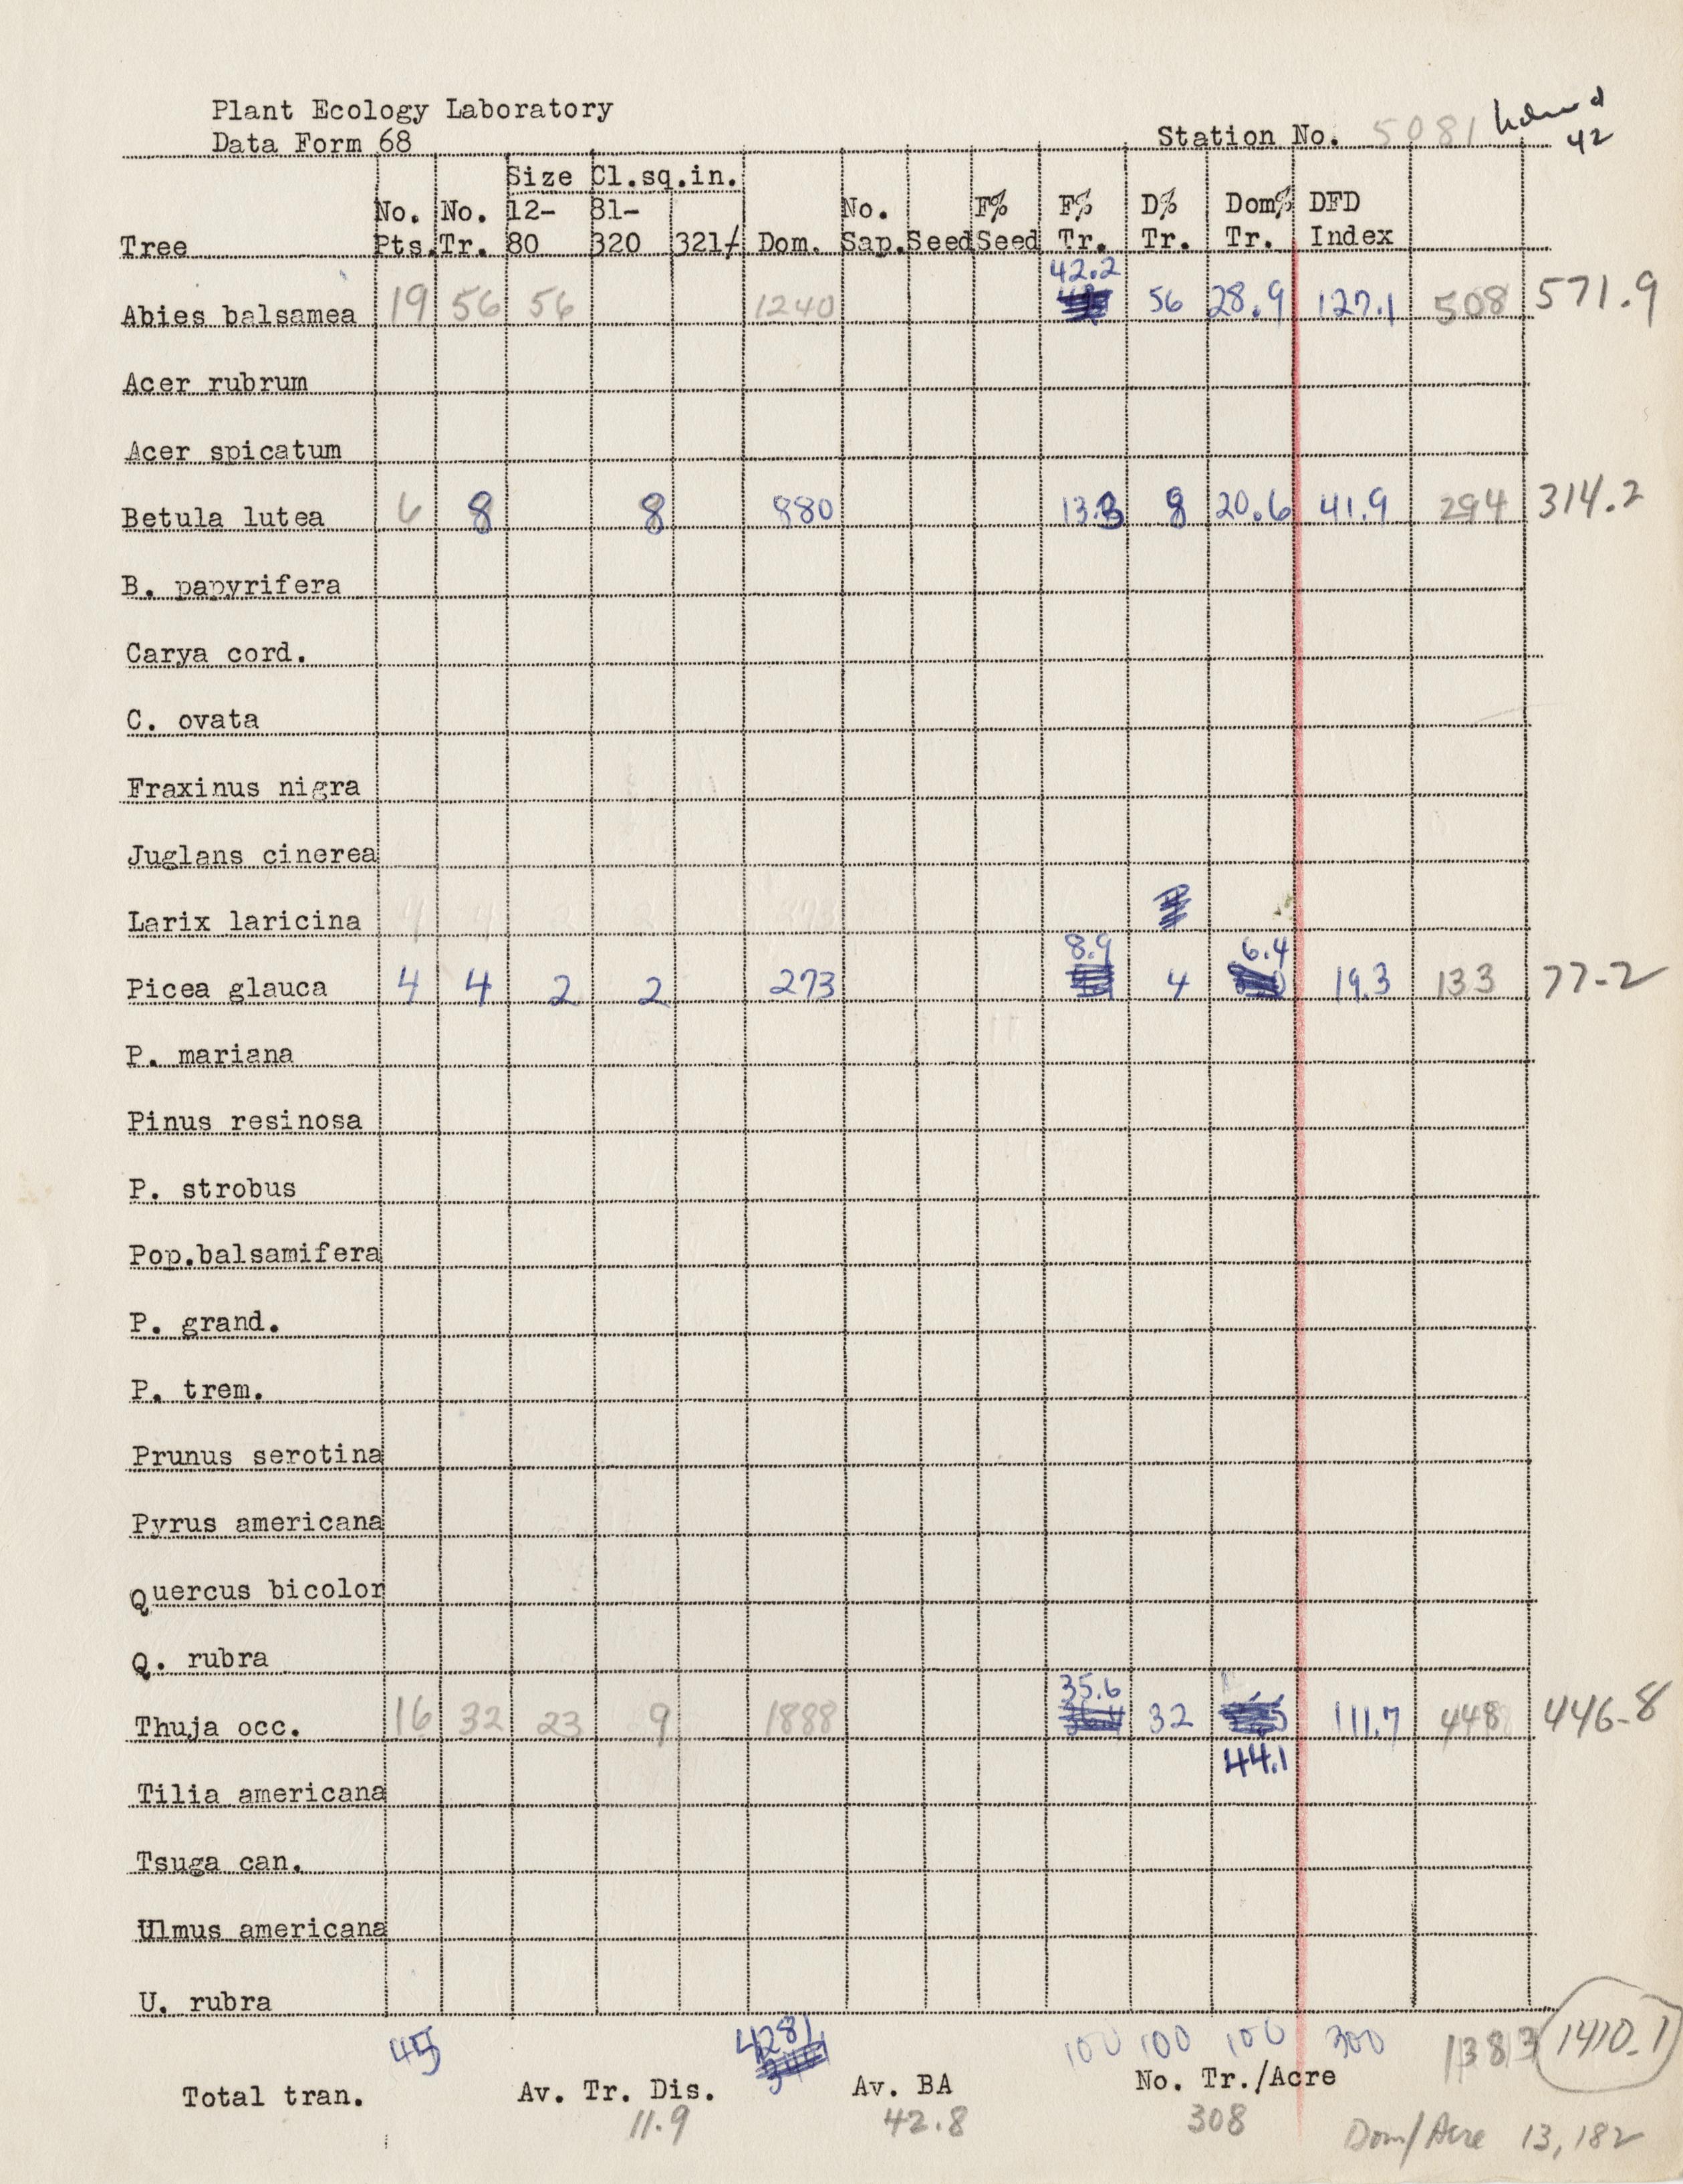 Plant Ecology Laboratory
Data Form 68
Station No. 5081
42
Size Cl.sq.in.
No. No. 12- 81- No. F% F% D% Dom% DFD
Tree Pts. Tr. 80 320 321/ Dom. Sap. Seed Seed Tr. Tr. Tr. Index
42.2
Abies balsamea 19 56 56 1240 56 28.9 127.1 508 571.9
Acer rubrum
Acer spicatum
Betula lutea 6 8 8 880 13.3 8 20.6 41.9 294 314.2
B. papyrifera
Carya cord.
C. ovata
Fraxinus nigra
Juglans cinerea
Larix laricina
8.9 6.4
Picea glauca 4 4 2 2 273 4 19.3 133 77-2
P. mariana
Pinus resinosa
P. strobus
Pop.balsamifera
P. grand.
P. trem.
Prunus serotina
Pyrus americana
Quercus bicolor
Q. rubra
35.6
Thuja occ. 16 32 23 9 1888 32 111.7 448 446-8
44.1
Tilia americana
Tsuga can.
Ulmus americana
U. rubra
45 4281 100 100 100 300 1383 1410-1
Total tran. Av. Tr. Dis. Av. BA No. Tr./Acre
11.9 42.8 308 Dom/Acre 13,182